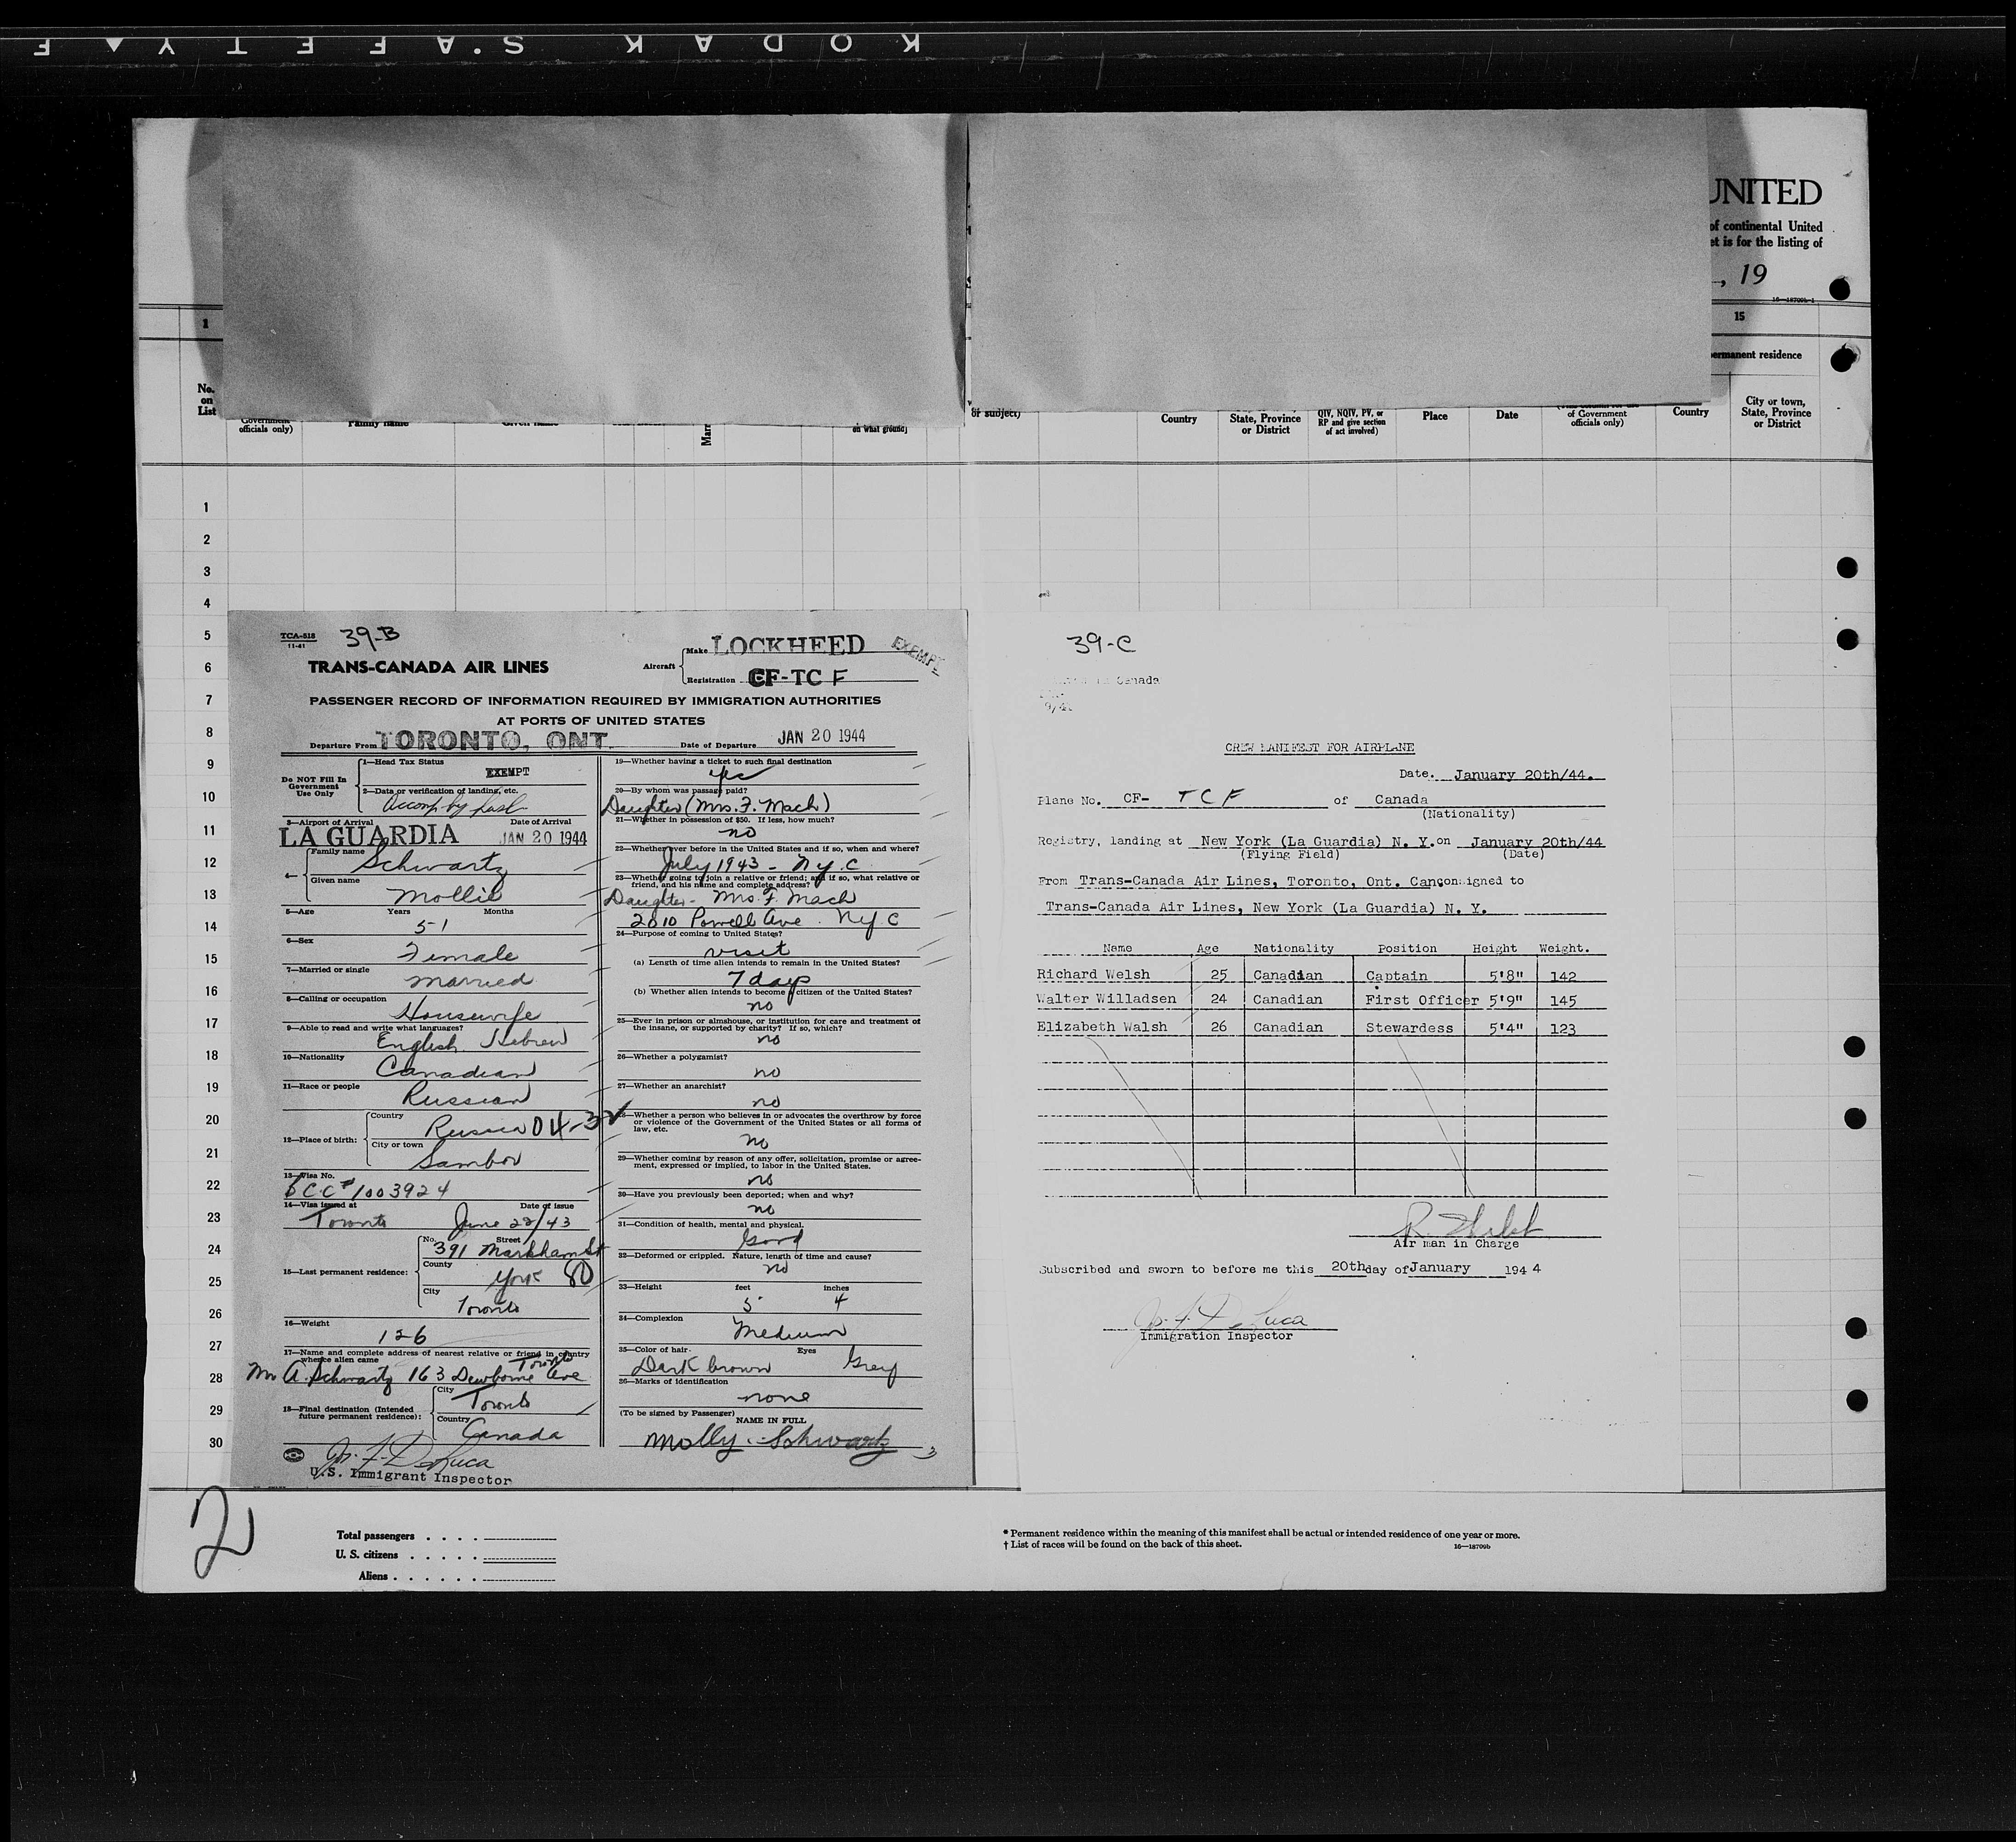 KODAK S.AFETY F
UNITED
of continental United
et is for the listing of
, 19
16—18709b-1
1
15
ermanent residence
No.
on
List
Government
officials only)
Family name
Given name
Marr
on what ground]
or subject)
Country
State, Province
or District
QIV, NQIV, PV, or
RP and give section
of act involved)
Place
Date
of Government
officials only)
Country
City or town,
State, Province
or District
1
2
3
4
5
6
7
8
9
10
11
12
13
14
15
16
17
18
19
20
21
22
23
24
25
26
27
28
29
30
TCA-518
11-41
39-B
TRANS-CANADA AIR LINES
Aircraft
Make LOCKHEED
Registration CF-TC F
EXEMPT
PASSENGER RECORD OF INFORMATION REQUIRED BY IMMIGRATION AUTHORITIES
AT PORTS OF UNITED STATES
Departure From TORONTO, ONT.
Date of Departure JAN 20 1944
Do NOT Fill In
Government
Use Only
1—Head Tax Status
EXEMPT
2—Data or verification of landing, etc.
Accomp by
3—Airport of Arrival Date of Arrival
LA GUARDIA JAN 20 1944
4—
Family name Schwartz
Given name
Mollie
5—Age Years Months
51
6—Sex
Female
7—Married or single
married
8—Calling or occupation
Housewife
9—Able to read and write what languages?
English Hebrew
10—Nationality
Canadian
11—Race or people
Russian
12—Place of birth:
Country
Russia 04-32
City or town
Sambor
13—Visa No.
BCC# 1003924
14—Visa issued at Date of issue
Toronto June 22/43
15—Last permanent residence:
No. Street
391 Markham St
County
York 80
City
Toronto
16—Weight
126
17—Name and complete address of nearest relative or friend in country
whence alien came
Toronto
Mr A. Schwartz 163 Dewbourne Ave
18—Final destination (Intended
future permanent residence):
City
Toronto
Country
Canada
Jos. F. De Luca
U.S. Immigrant Inspector
19—Whether having a ticket to such final destination
yes
20—By whom was passage paid?
Daughter (Mrs. F. Mach)
21—Whether in possession of $50. If less, how much?
no
22—Whether ever before in the United States and if so, when and where?
July 1943 - N.Y.C.
23—Whether going to join a relative or friend; and if so, what relative or
friend, and his name and complete address?
Daughter - Mrs. F. Mach
2810 Powell Ave. N.Y.C
24—Purpose of coming to United States?
visit
(a) Length of time alien intends to remain in the United States?
7 days
(b) Whether alien intends to become citizen of the United States?
no
25—Ever in prison or almshouse, or institution for care and treatment of
the insane, or supported by charity? If so, which?
no
26—Whether a polygamist?
no
27—Whether an anarchist?
no
28—Whether a person who believes in or advocates the overthrow by force
or violence of the Government of the United States or all forms of
law, etc.
no
29—Whether coming by reason of any offer, solicitation, promise or agree-
ment, expressed or implied, to labor in the United States.
no
30—Have you previously been deported; when and why?
no
31—Condition of health, mental and physical.
Good
32—Deformed or crippled. Nature, length of time and cause?
no
33—Height feet inches
5 4
34—Complexion
Medium
35—Color of hair Eyes
Dark brown Grey
36—Marks of identification
none
(To be signed by Passenger)
NAME IN FULL
Molly Schwartz
3
39-C
Canada
9/42
CREW MANIFEST FOR AIRPLANE
Date. January 20th/44.
Plane No. CF- TCF of Canada
(Nationality)
Registry, landing at New York (La Guardia) N. Y. on January 20th/44
(Flying Field) (Date)
From Trans-Canada Air Lines, Toronto, Ont. Can consigned to
Trans-Canada Air Lines, New York (La Guardia) N. Y.
Name Age Nationality Position Height Weight.
Richard Welsh 25 Canadian Captain 5'8" 142
Walter Willadsen 24 Canadian First Officer 5'9" 145
Elizabeth Walsh 26 Canadian Stewardess 5'4" 123
Air man in Charge
Subscribed and sworn to before me this 20th day of January 194 4
Jos. F. De Luca
Immigration Inspector
2
Total passengers . . . .
U. S. citizens . . . . .
Aliens . . . . . .
* Permanent residence within the meaning of this manifest shall be actual or intended residence of one year or more.
† List of races will be found on the back of this sheet.
16—18709b